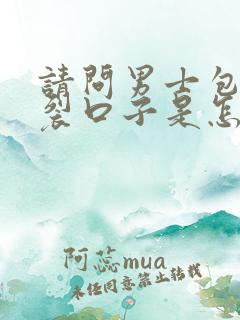 請問男士包
裂口子是怎
阿蕊mua
未經同意禁止轉載